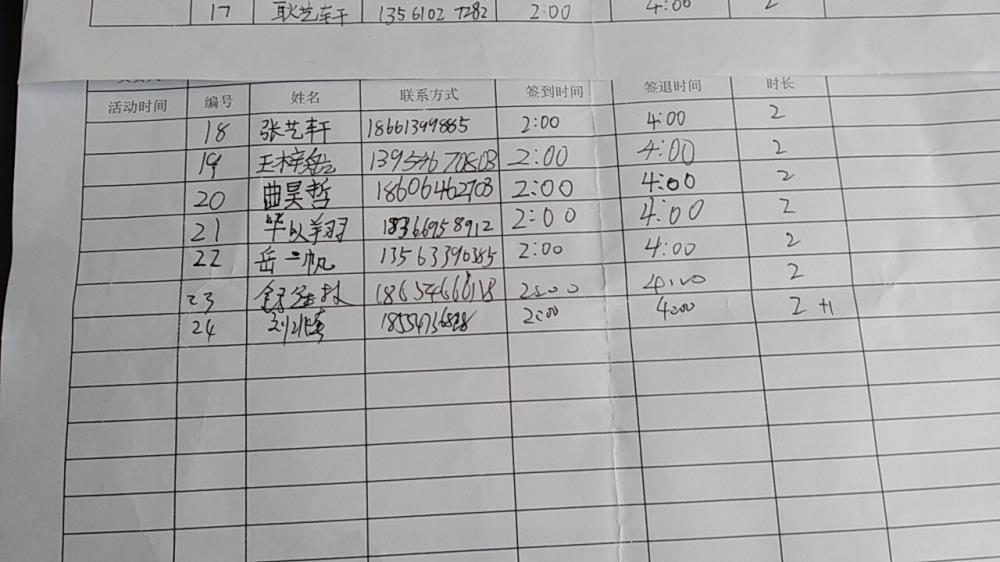 17 耿艺轩 13561027282 2:00 4:00 2
活动时间 编号 姓名 联系方式 签到时间 签退时间 时长
18 张艺轩 18661399885 2:00 4:00 2
19 王梓 13954670803 2:00 4:00 2
20 曲昊哲 18606462703 2:00 4:00 2
21 毕以翔 18366958912 2:00 4:00 2
22 岳一帆 13563390385 2:00 4:00 2
23 18654666118 2:00 4:00 2
24 刘 2:00 4:00 2 +1